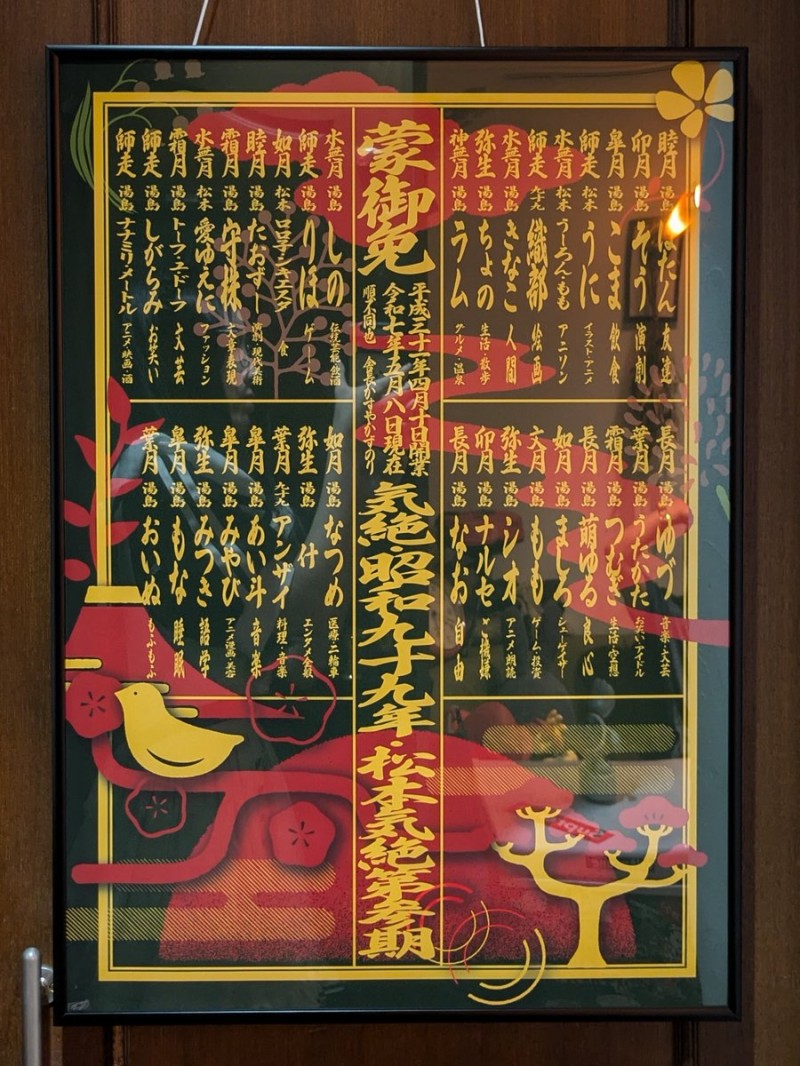 睦月 湯島 ぼたん 友達
卯月 湯島 そう 演劇
皐月 湯島 こま 飲食
師走 松本 うに イラスト アニメ
水無月 松本 うーろん・もも アニソン
師走 九十九 織部 絵画
水無月 湯島 きなこ 人間
弥生 湯島 ちょの 生活・散歩
神無月 湯島 ラム グルメ・温泉
長月 湯島 ゆづ 音楽・文芸
葉月 湯島 うたかた お笑い・アイドル
霜月 湯島 つむぎ 生活・空想
長月 湯島 萌ゆる 良心
如月 湯島 ましろ シューゲイザー
文月 湯島 もも ゲーム・投資
弥生 湯島 シオ アニメ・朗読
卯月 湯島 ナルセ ご機嫌
長月 湯島 なお 自由
蒙御免
平成三十一年四月十日開業
令和七年五月八日現在
順不同也 会長かすやかずのり
気絶・昭和九十九年・松本気絶第参期
水無月 湯島 しの 伝統芸能・飲酒
師走 湯島 りほ ゲーム
如月 松本 ロロ子・ンキエスタ 食
睦月 湯島 たおずー 演劇・現代美術
霜月 湯島 守株 文章表現
水無月 松本 愛ゆえに ファッション
霜月 湯島 トーフ・ユドーフ 文芸
師走 湯島 しがらみ お笑い
師走 湯島 ナナミリメートル アニメ・映画・酒
如月 湯島 なつめ 医療・二輪車
弥生 湯島 付 エンタメ全般
葉月 九十九 アンザイ 料理・音楽
皐月 湯島 あい斗 音楽
皐月 湯島 みやび アニメ 美容
弥生 湯島 みつき 語学
皐月 湯島 もな 睡眠
葉月 湯島 おいぬ もふもふ